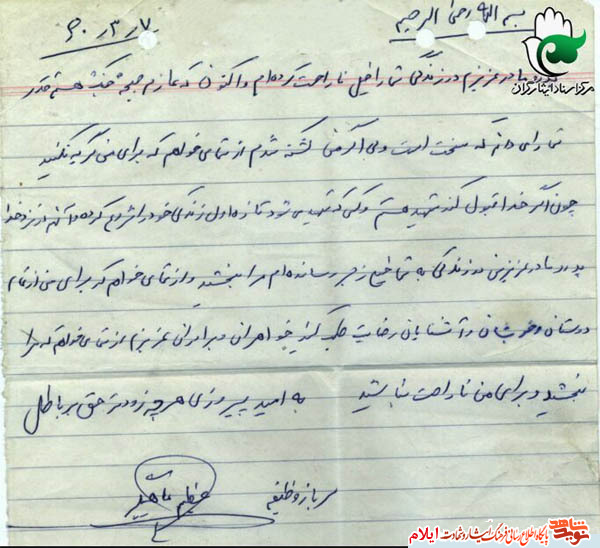 بسم الله الرحمن الرحیم
۶۰/۳/۷
مرکز اسناد ایثارگران
پدر و مادر عزیزم در زندگی شما را خیلی ناراحت کرده‌ام و اکنون که عازم جبهه جنگ هستم قدر
شما را می دانم که سخت است ولی اگر من کشته شدم از شما می خواهم که برای من گریه نکنید
چون اگر خدا قبول کند شهید هستم و کسی که شهید می شود تازه اول زندگی خود را شروع کرده آنهم در نزد خدا
پدر و مادر عزیز من در زندگی به شما خیلی زجر رسانده‌ام مرا ببخشید و از شما می خواهم که برای من از تمام
دوستان و خویشان و آشنایان رضایت طلب کنید خواهران و برادران عزیزم از شما می خواهم که مرا
ببخشید و برای من ناراحت نباشید به امید پیروزی هر چه زودتر حق بر باطل
سرباز وظیفه
نوید شاهد
پایگاه اطلاع رسانی فرهنگ ایثار و شهادت ایلام